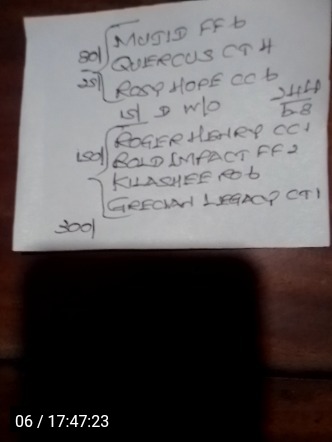 80/ MUJID FF 6
QUERCUS CT 4
25/ ROSY HOPE CC 6
15/ D W/O
244
58
150/ ROGER HENRY CC 1
BOLD IMPACT FF 2
KILASHEE PO 6
GRECIAN LEGACY CT 1
300/
06 / 17:47:23